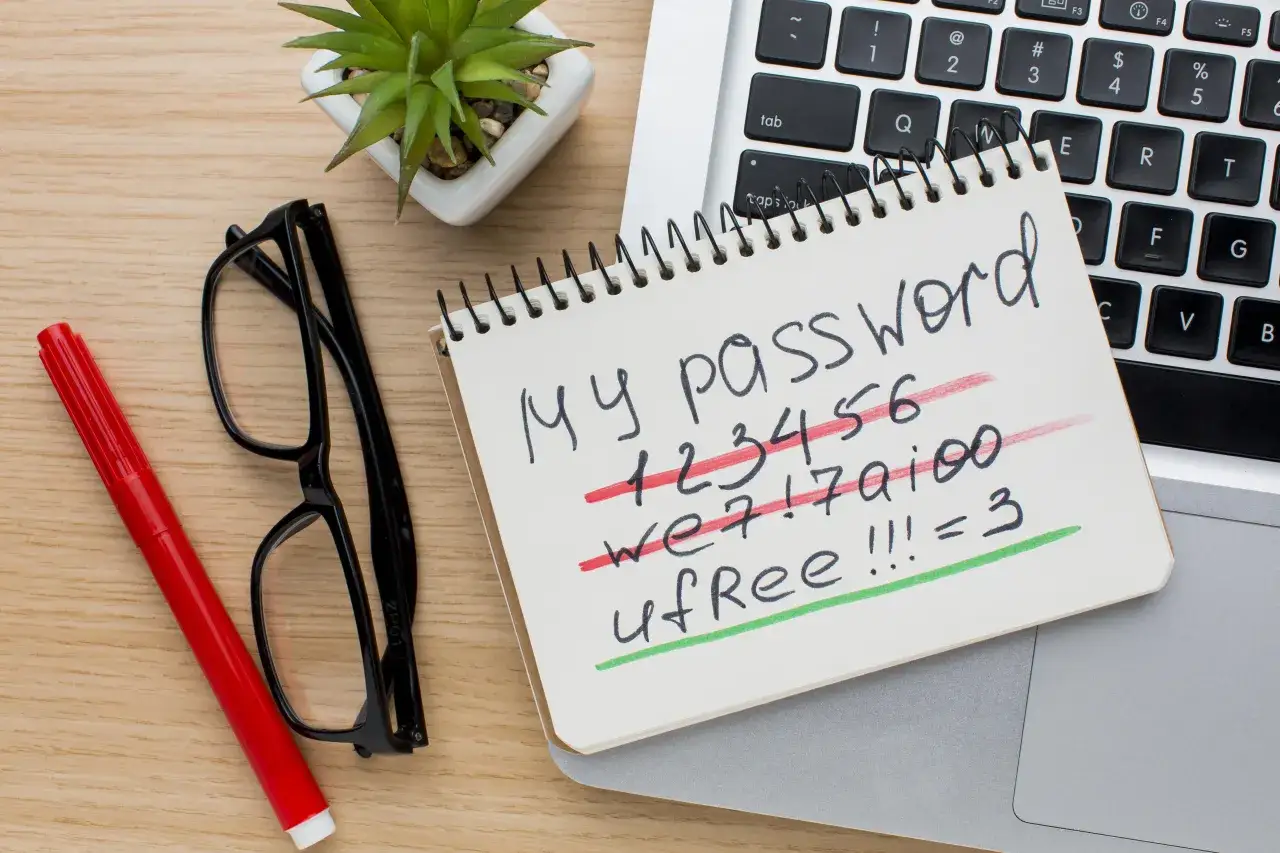 ~
! 1
@ 2
# 3
$ 4
% 5
F3
F4
F5
tab
Q
W
E
R
T
caps lock
F
G
C
V
B
My password
123456
we7!7aio0
ufRee!!!=3